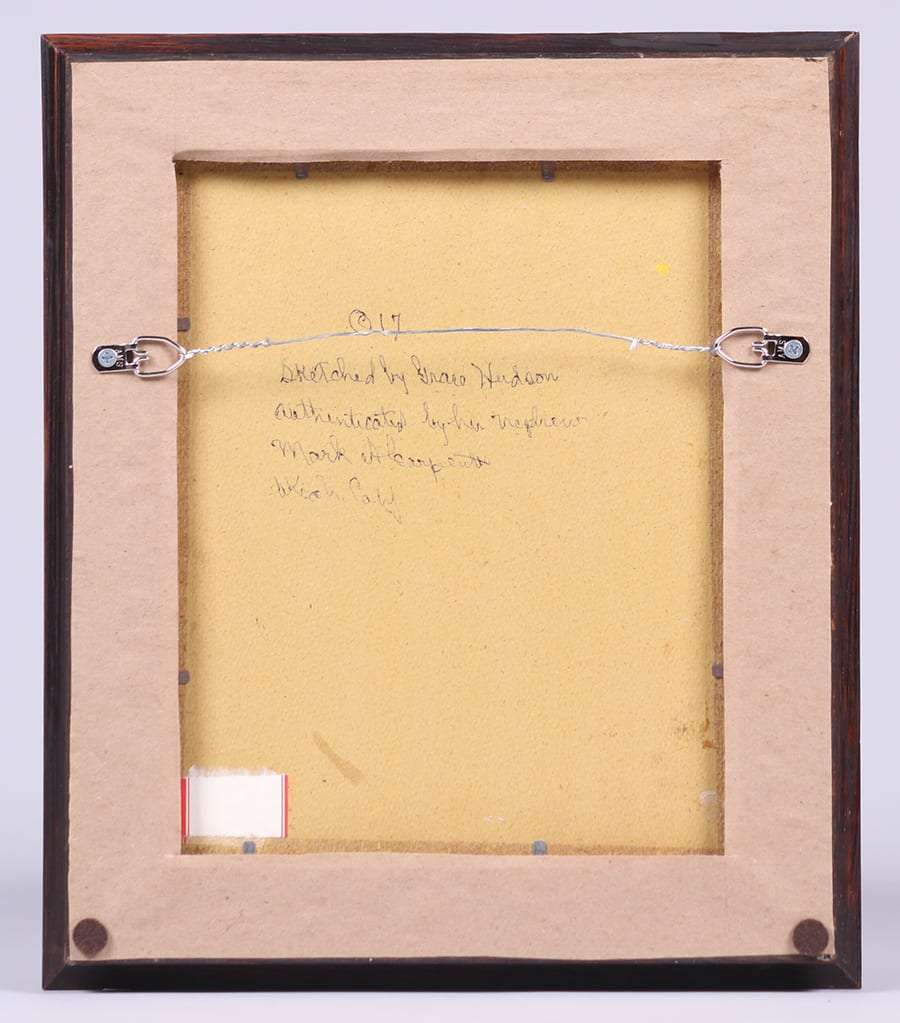 ©17
Sketched by Grace Hudson
authenticated by her nephew
Mark A Carpenter
Ukiah, Calif